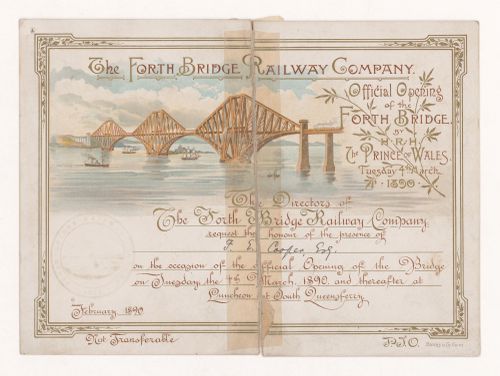 The Forth Bridge Railway Company.
Official Opening
of the
Forth Bridge,
BY
H.R.H.
The Prince of Wales,
Tuesday 4th March
1890
The Directors of
The Forth Bridge Railway Company,
request the honour of the presence of
F. E. Cooper, Esq.
on the occasion of the Official Opening of the Bridge
on Tuesday the 4th March, 1890, and thereafter at
Luncheon at South Queensferry.
February, 1890
Not Transferable
P.T.O.